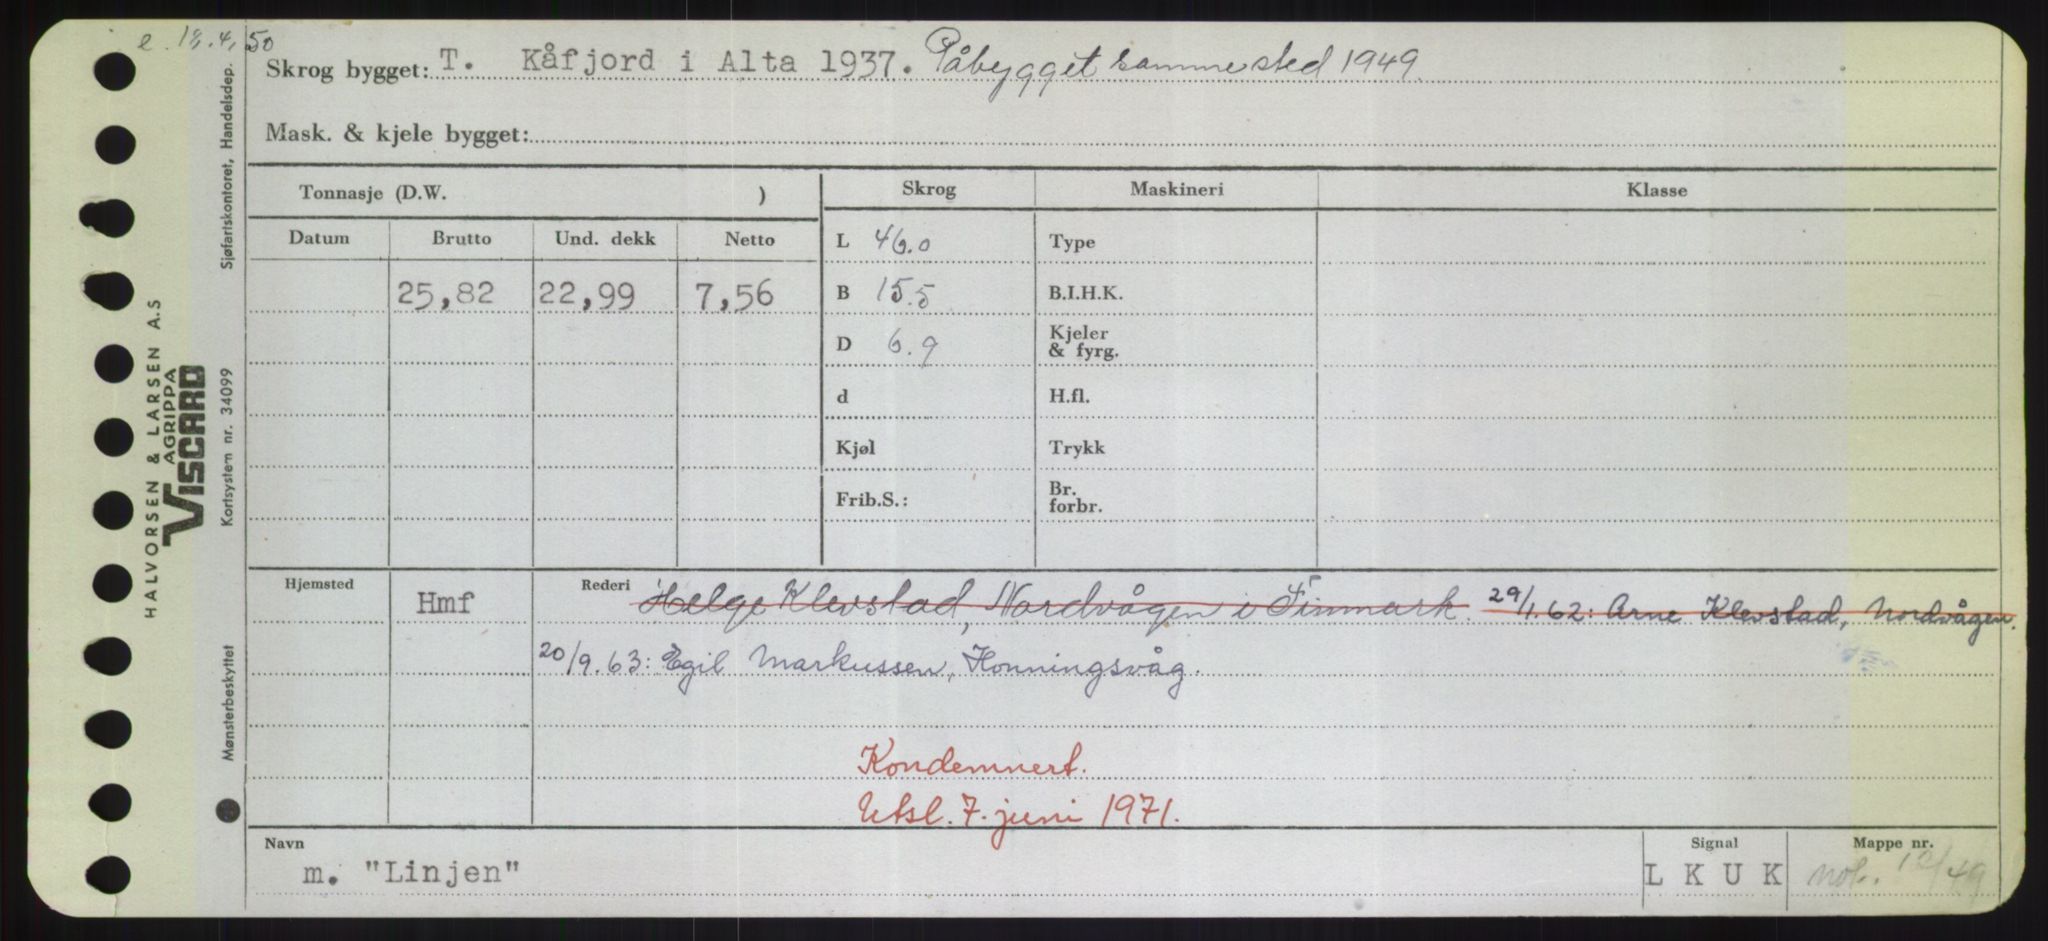 e. 18.4.50
Skrog bygget: T. Kåfjord i Alta 1937. Påbygget samme sted 1949
Mask. & kjele bygget:
Tonnasje (D.W. )
Skrog
Maskineri
Klasse
Datum
Brutto
Und. dekk
Netto
25,82
22,99
7,56
L 46.0
B 15.5
D 6.9
d
Kjøl
Frib.S.:
Type
B.I.H.K.
Kjeler
& fyrg.
H.fl.
Trykk
Br.
forbr.
Hjemsted
Hmf
Rederi Helge Klevstad, Nordvågen i Finmark. 29/1.62: Arne Klevstad, Nordvågen.
20/9.63: Egil Markussen, Honningsvåg.
Kondemnert.
Utsl. 7. juni 1971.
Navn
m. "Linjen"
Signal
L K U K
Mappe nr.
12/49
HALVORSEN & LARSEN A.S
AGRIPPA
VISCARD
Sjøfartskontoret, Handelsdep.
Kortsystem nr. 34099
Mønsterbeskyttet